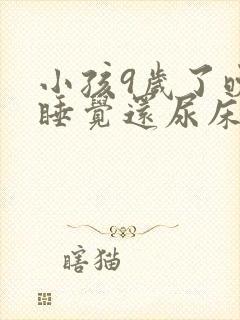 小孩9歲了
睡覺還尿床
瞎猫